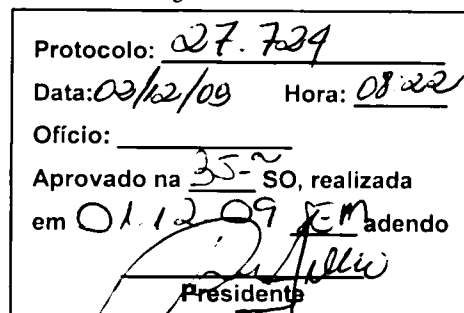 Protocolo: 27.724
Data: 02/12/09 Hora: 08:22
Ofício:
Aprovado na 35ª SO, realizada
em 01.12.09 adendo
Presidente